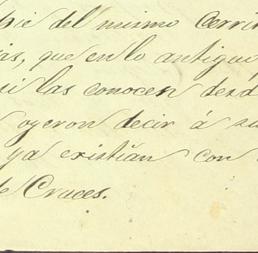 pie del mismo Cerri
is, que en lo antigu
i las conocen desd
oyeron decir á su
ya existían con
de Cruces.